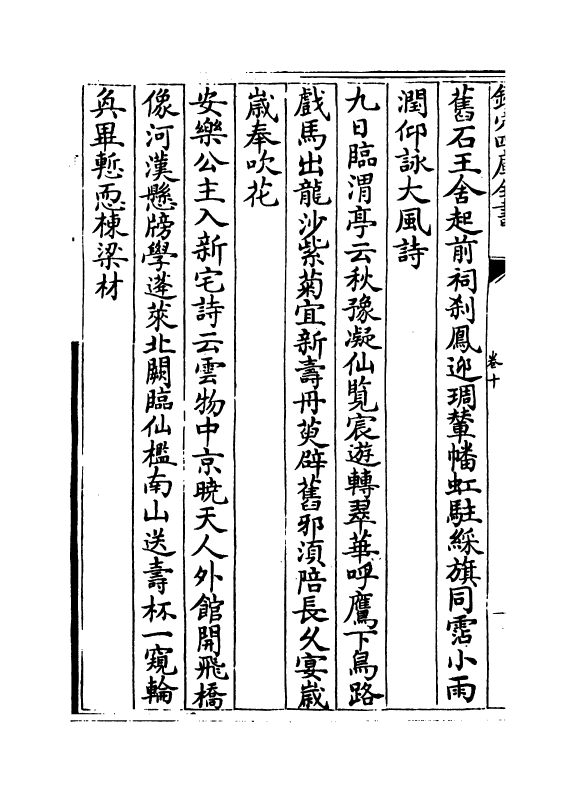 舊石王舍起前祠刹鳳迎琱輦幡虹駐綵旗同霑小雨
潤仰詠大風詩
九日臨渭亭云秋豫凝仙覽宸遊轉翠華呼鷹下鳥路
戲馬出龍沙紫菊宜新壽丹萸辟舊邪須陪長久宴歲
歲奉吹花
安樂公主入新宅詩云雲物中京曉天人外館開飛橋
像河漢懸牓學蓬萊北闕臨仙檻南山送壽杯一窺輪
奐畢慙恧棟梁材
卷十